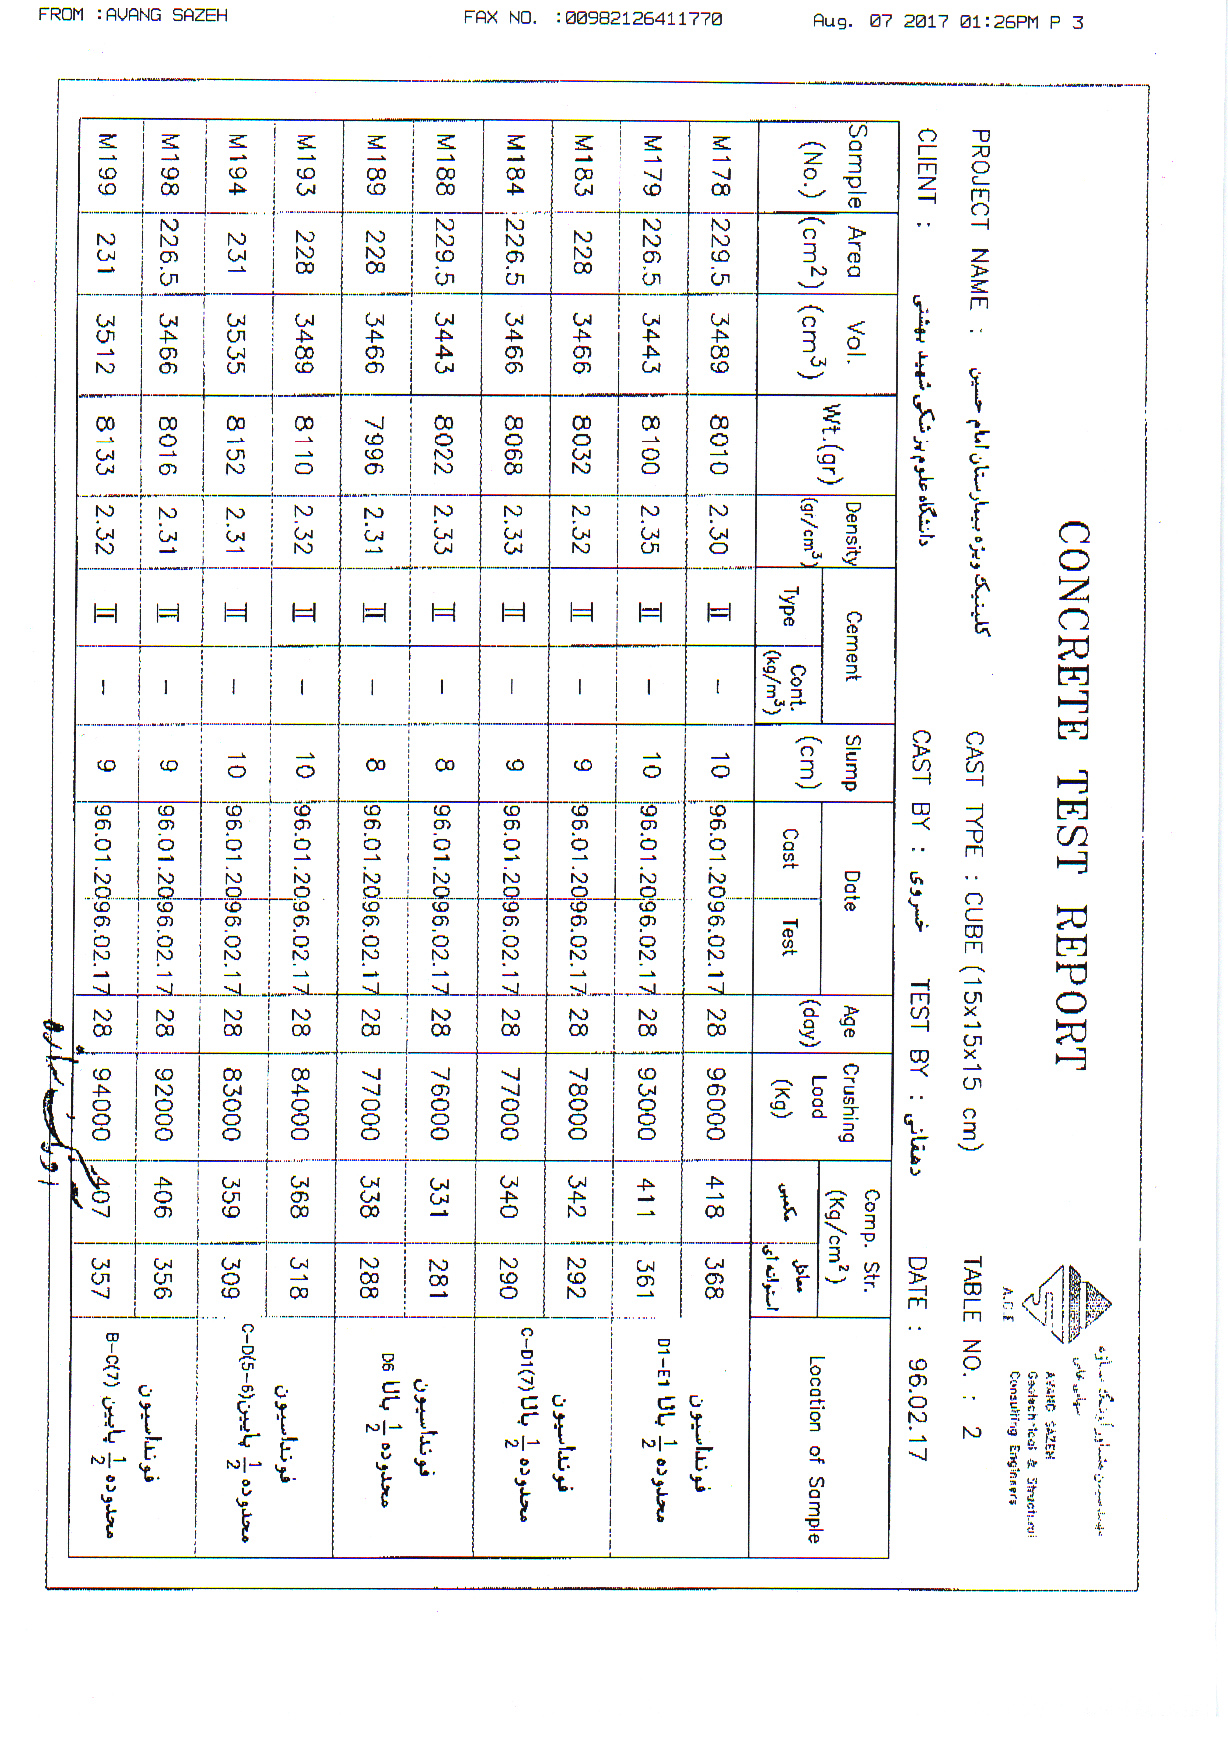 FROM :AVANG SAZEH FAX NO. :00982126411770 Aug. 07 2017 01:26PM P 3
CONCRETE TEST REPORT
A.G.E
AVANG SAZEH
Geotechnical & Structural
Consulting Engineers
PROJECT NAME : کلینیک ویژه بیمارستان امام حسین CAST TYPE : CUBE (15x15x15 cm) TABLE NO. : 2
CLIENT : دانشگاه علوم پزشکی شهید بهشتی CAST BY : خسروی TEST BY : دهقانی DATE : 96.02.17
Sample (No.) Area (cm2) Vol. (cm3) Wt.(gr) Density (gr/cm3) Cement Type Cont. (kg/m3) Slump (cm) Date Cast Test Age (day) Crushing Load (Kg) Comp. Str. (Kg/cm2) مکعبی معادل استوانه ای Location of Sample
M178 229.5 3489 8010 2.30 II – 10 96.01.20 96.02.17 28 96000 418 368 فونداسیون
M179 226.5 3443 8100 2.35 II – 10 96.01.20 96.02.17 28 93000 411 361 محدوده 1/2 بالا D1–E1
M183 228 3466 8032 2.32 II – 9 96.01.20 96.02.17 28 78000 342 292 فونداسیون
M184 226.5 3466 8068 2.33 II – 9 96.01.20 96.02.17 28 77000 340 290 محدوده 1/2 بالا C–D1(7)
M188 229.5 3443 8022 2.33 II – 8 96.01.20 96.02.17 28 76000 331 281 فونداسیون
M189 228 3466 7996 2.31 II – 8 96.01.20 96.02.17 28 77000 338 288 محدوده 1/2 بالا D6
M193 228 3489 8110 2.32 II – 10 96.01.20 96.02.17 28 84000 368 318 فونداسیون
M194 231 3535 8152 2.31 II – 10 96.01.20 96.02.17 28 83000 359 309 محدوده 1/2 پایین C–D(5–6)
M198 226.5 3466 8016 2.31 II – 9 96.01.20 96.02.17 28 92000 406 356 فونداسیون
M199 231 3512 8133 2.32 II – 9 96.01.20 96.02.17 28 94000 407 357 محدوده 1/2 پایین B–C(7)